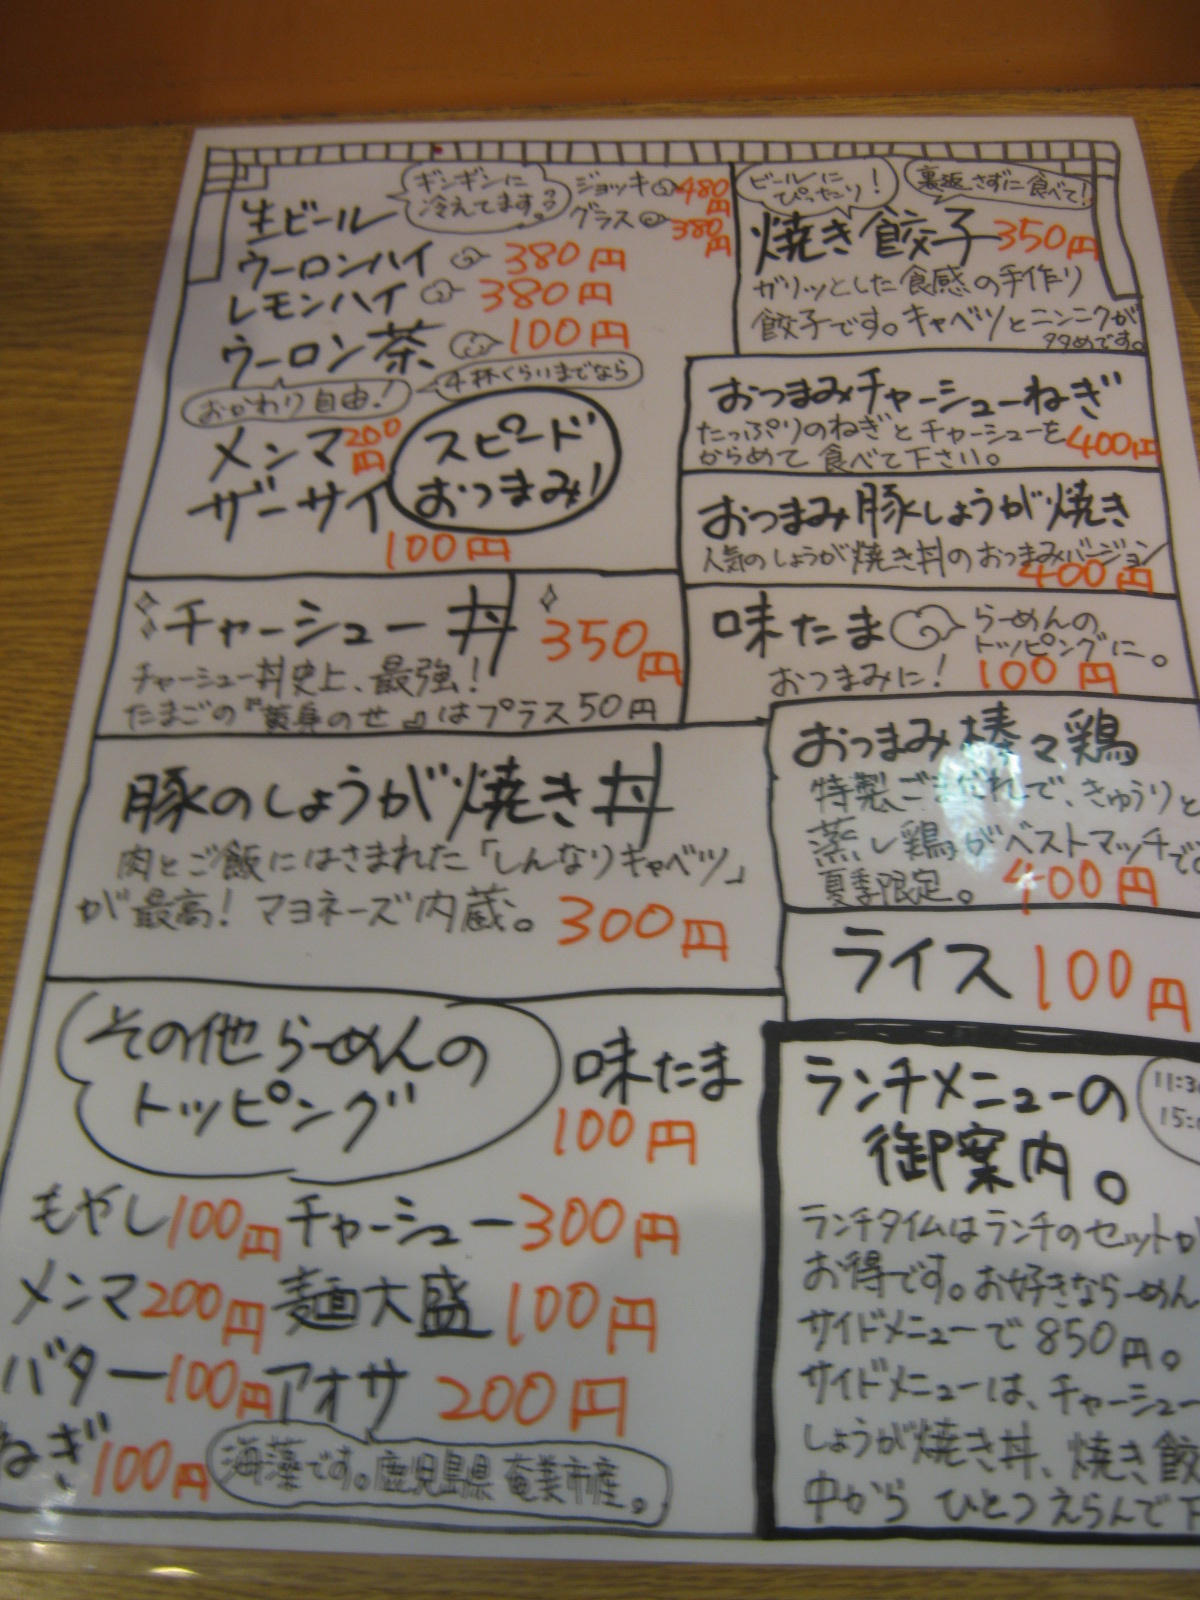 生ビール
ギンギンに
冷えてます。
ジョッキ 480円
グラス 380円
ウーロンハイ 380円
レモンハイ 380円
ウーロン茶 100円
おかわり自由!
4杯くらいまでなら
メンマ 200円
ザーサイ 100円
スピード
おつまみ!
ビールに
ぴったり!
裏返さずに食べて!
焼き餃子 350円
ガリッとした食感の手作り
餃子です。キャベツとニンニクが
多めです。
おつまみチャーシューねぎ
たっぷりのねぎとチャーシューを
からめて食べて下さい。 400円
おつまみ豚しょうが焼き
人気のしょうが焼き丼のおつまみバージョン
400円
チャーシュー丼 350円
チャーシュー丼史上、最強!
たまごの『黄身のせ』はプラス50円
味たま
らーめんの
トッピングに。
おつまみに! 100円
豚のしょうが焼き丼
肉とご飯にはさまれた「しんなりキャベツ」
が最高!マヨネーズ内蔵。 300円
おつまみ棒々鶏
特製ごまだれで、きゅうりと
蒸し鶏がベストマッチで
夏季限定。 400円
ライス 100円
その他らーめんの
トッピング
味たま
100円
もやし 100円 チャーシュー 300円
メンマ 200円 麺大盛 100円
バター 100円 アオサ 200円
ねぎ 100円
海藻です。鹿児島県奄美市産。
ランチメニューの
御案内。
ランチタイムはランチのセットが
お得です。お好きならーめん
サイドメニューで850円。
サイドメニューは、チャーシュー
しょうが焼き丼、焼き餃
中から ひとつえらんで下